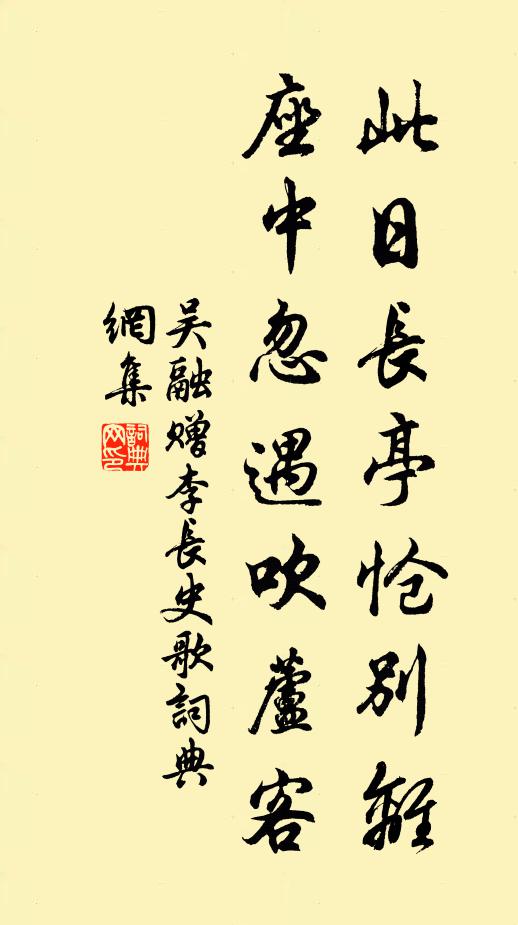 此日長亭愴別離
座中忽遇吹蘆客
吳融贈李長史歌詞典
網集
詞典網印